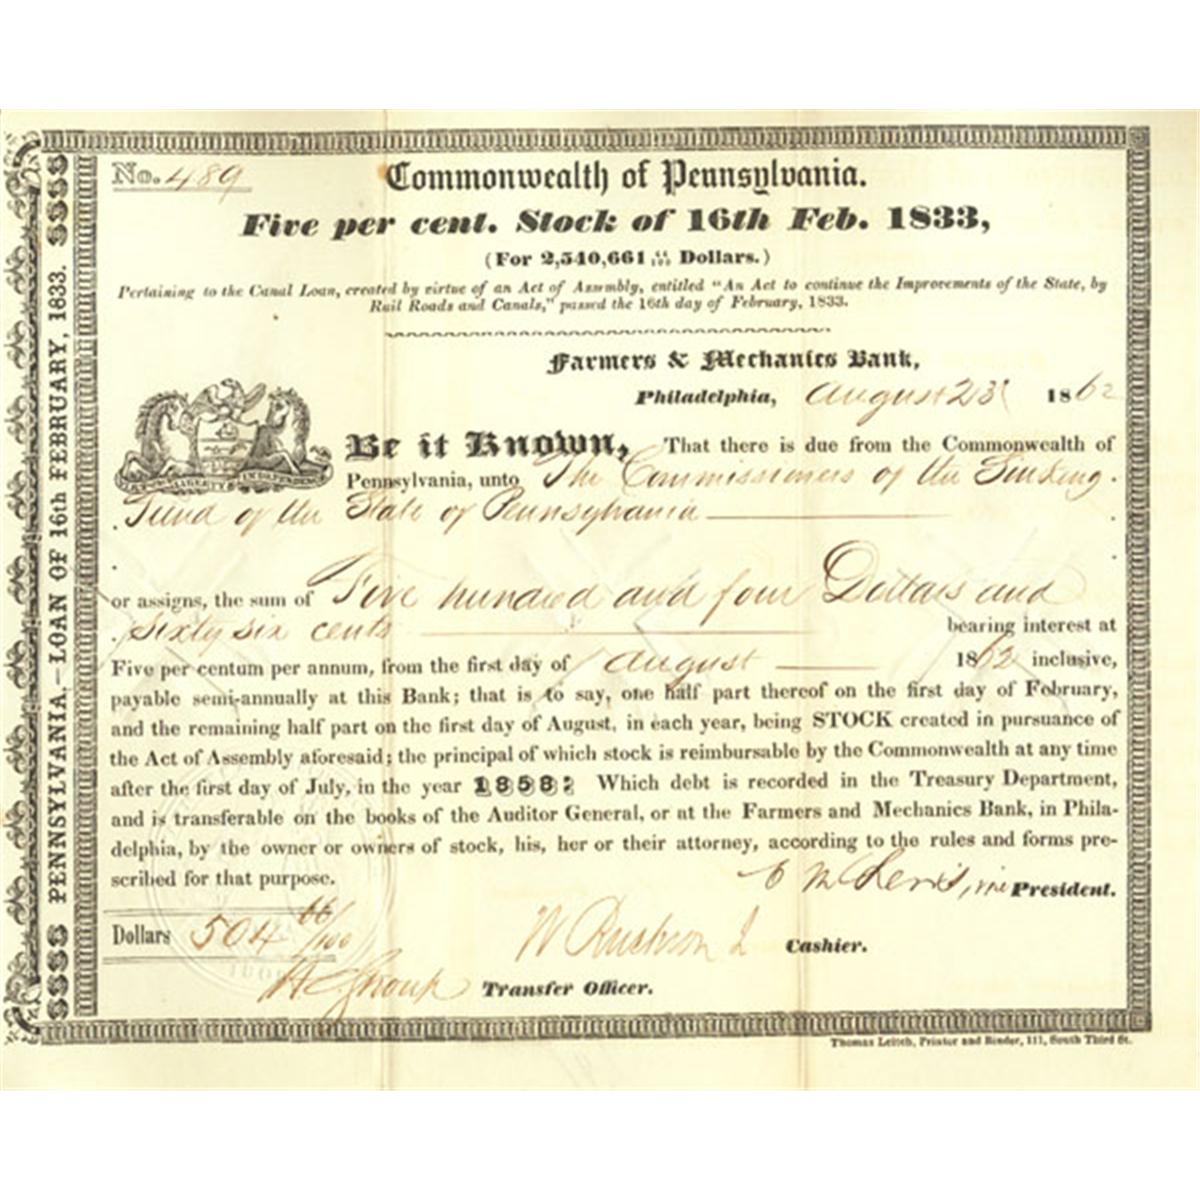 No. 489
Commonwealth of Pennsylvania.
Five per cent. Stock of 16th Feb. 1833,
(For 2,540,661 44/100 Dollars.)
Pertaining to the Canal Loan, created by virtue of an Act of Assembly, entitled "An Act to continue the Improvements of the State, by
Rail Roads and Canals," passed the 16th day of February, 1833.
Farmers & Mechanics Bank,
Philadelphia, August 23 1862
Be it Known, That there is due from the Commonwealth of
Pennsylvania, unto The Commissioners of the Sinking
Fund of the State of Pennsylvania
or assigns, the sum of Five hundred and four Dollars and
Sixty six cents bearing interest at
Five per centum per annum, from the first day of August 1862 inclusive,
payable semi-annually at this Bank; that is to say, one half part thereof on the first day of February,
and the remaining half part on the first day of August, in each year, being STOCK created in pursuance of
the Act of Assembly aforesaid; the principal of which stock is reimbursable by the Commonwealth at any time
after the first day of July, in the year 1858: Which debt is recorded in the Treasury Department,
and is transferable on the books of the Auditor General, or at the Farmers and Mechanics Bank, in Phila-
delphia, by the owner or owners of stock, his, her or their attorney, according to the rules and forms pre-
scribed for that purpose.
President.
Dollars 504 66/100
W Rushton Jr Cashier.
Transfer Officer.
Thomas Leitch, Printer and Binder, 111, South Third St.
SSSS PENNSYLVANIA,—LOAN OF 16th FEBRUARY, 1833. SSSS